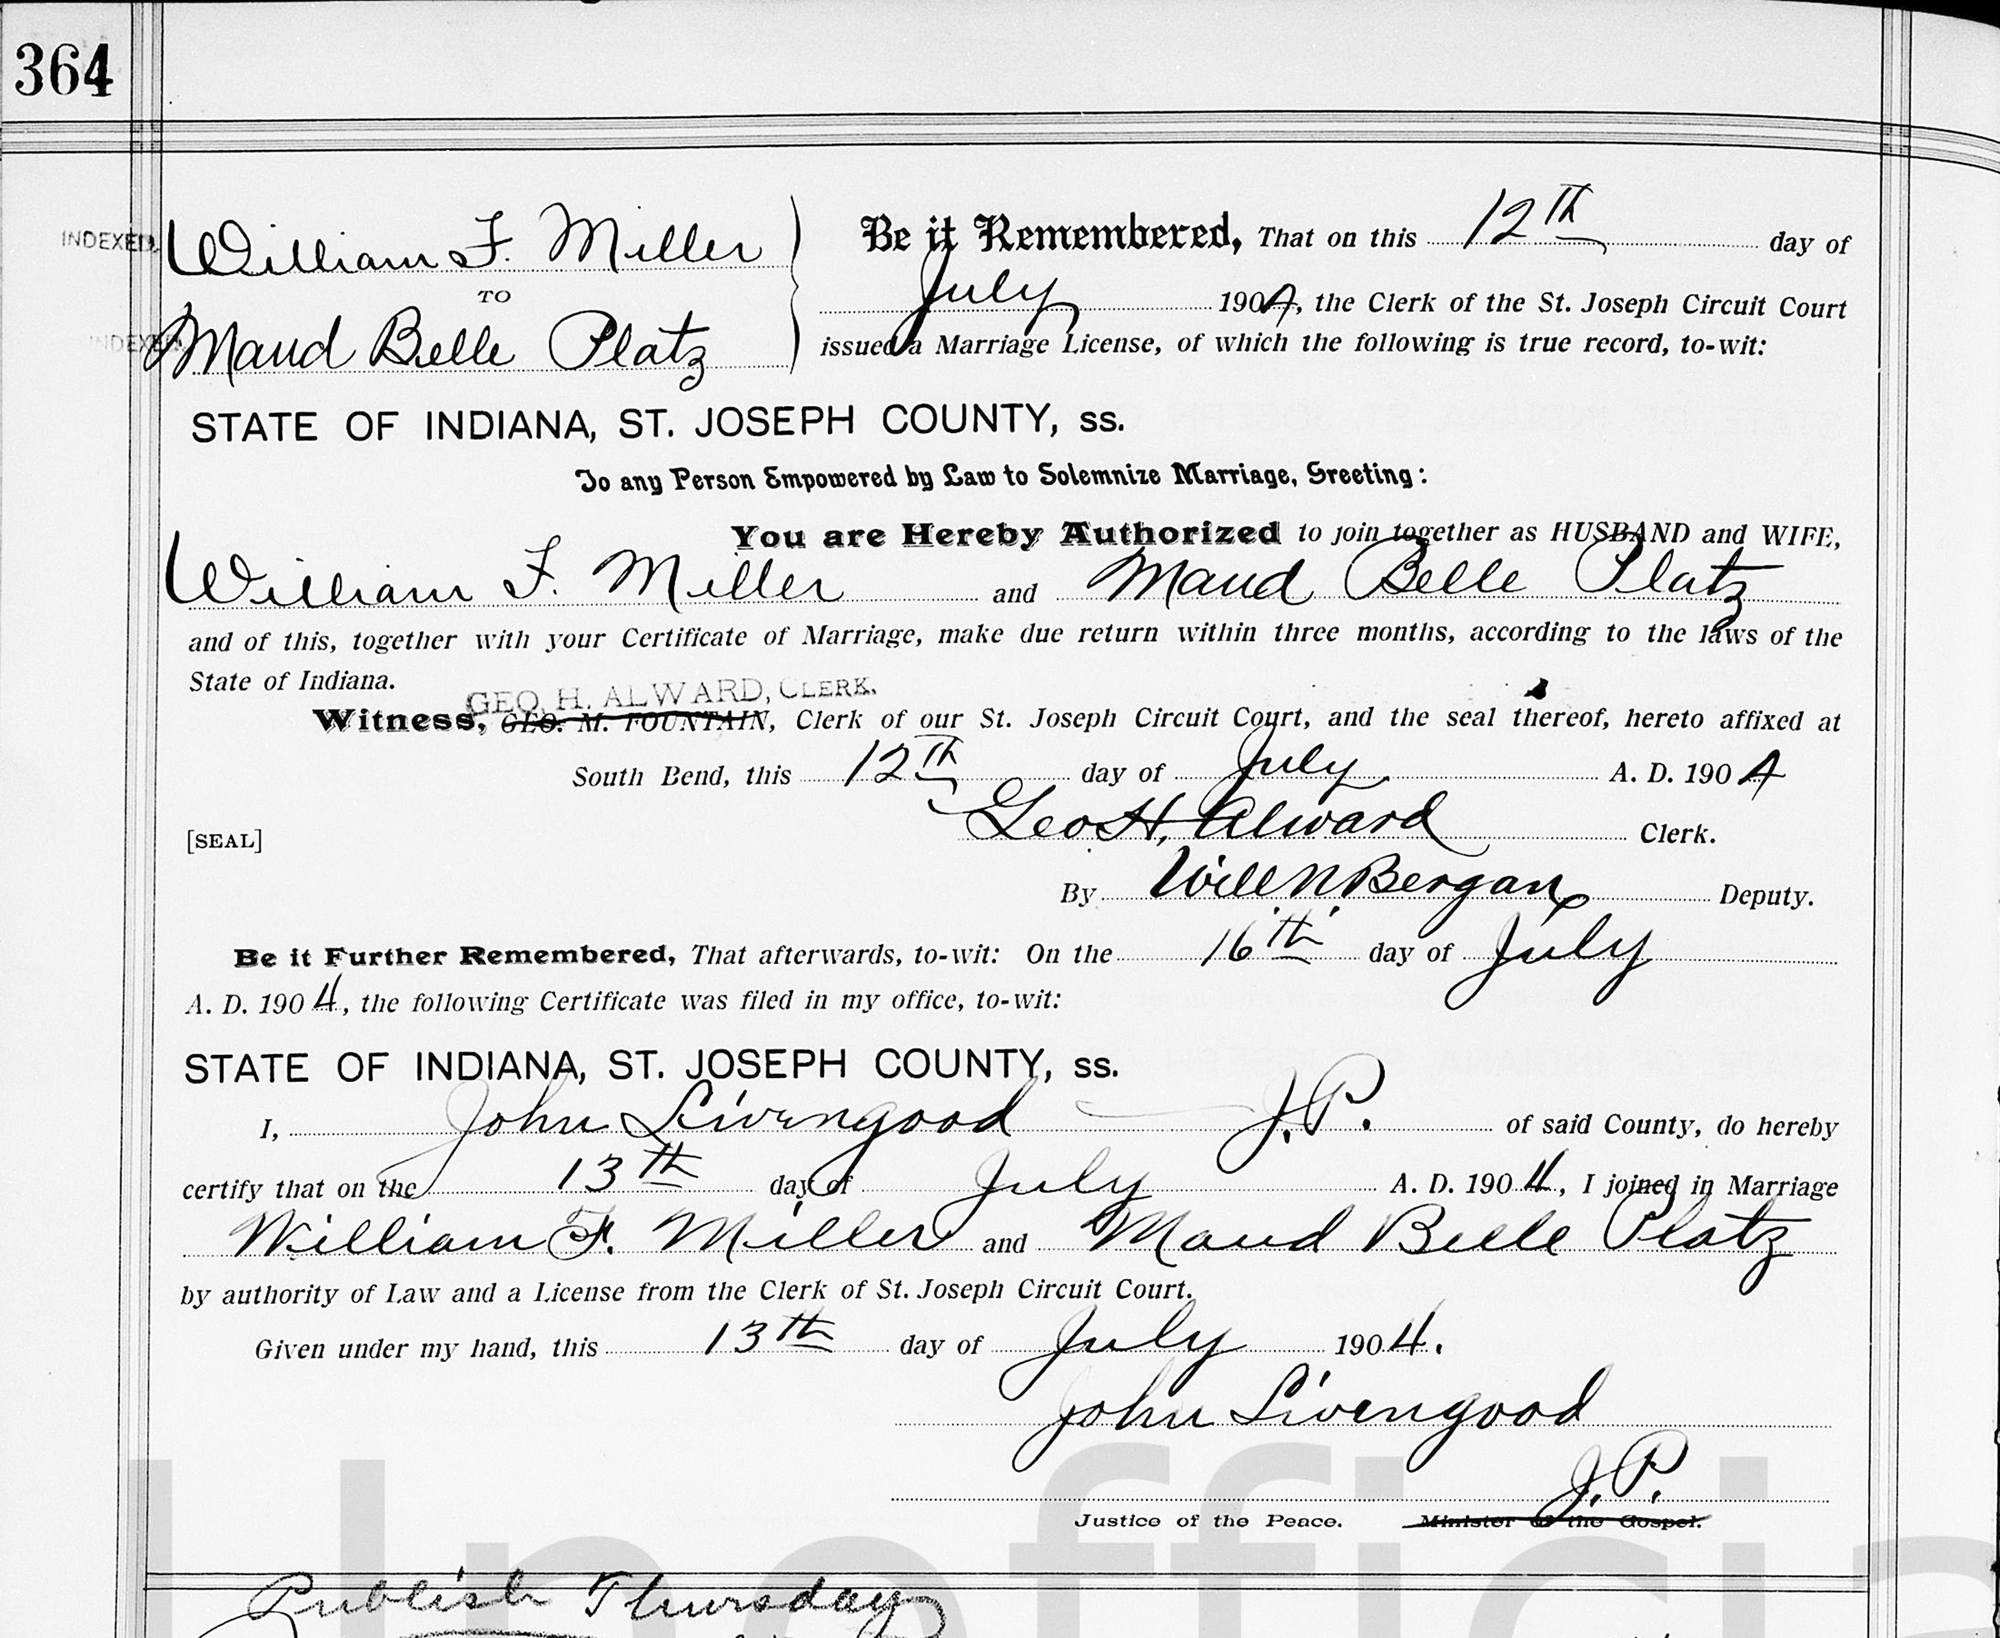 364
INDEXED. William F. Miller
TO
INDEXED Maud Belle Platz
Be it Remembered, That on this 12th day of
July 1904, the Clerk of the St. Joseph Circuit Court
issued a Marriage License, of which the following is true record, to-wit:
STATE OF INDIANA, ST. JOSEPH COUNTY, ss.
To any Person Empowered by Law to Solemnize Marriage, Greeting:
You are Hereby Authorized to join together as HUSBAND and WIFE,
William F. Miller and Maud Belle Platz
and of this, together with your Certificate of Marriage, make due return within three months, according to the laws of the
State of Indiana.
GEO. H. ALWARD, CLERK.
Witness, GEO. M. FOUNTAIN, Clerk of our St. Joseph Circuit Court, and the seal thereof, hereto affixed at
South Bend, this 12th day of July A. D. 1904
Geo H. Alward Clerk.
[SEAL]
By Will N Bergan Deputy.
Be it Further Remembered, That afterwards, to-wit: On the 16th day of July
A. D. 1904, the following Certificate was filed in my office, to-wit:
STATE OF INDIANA, ST. JOSEPH COUNTY, ss.
I, John Livengood J.P. of said County, do hereby
certify that on the 13th day of July A. D. 1904, I joined in Marriage
William F. Miller and Maud Belle Platz
by authority of Law and a License from the Clerk of St. Joseph Circuit Court.
Given under my hand, this 13th day of July 1904.
John Livengood
J.P.
Justice of the Peace. Minister of the Gospel.
Publish Thursday